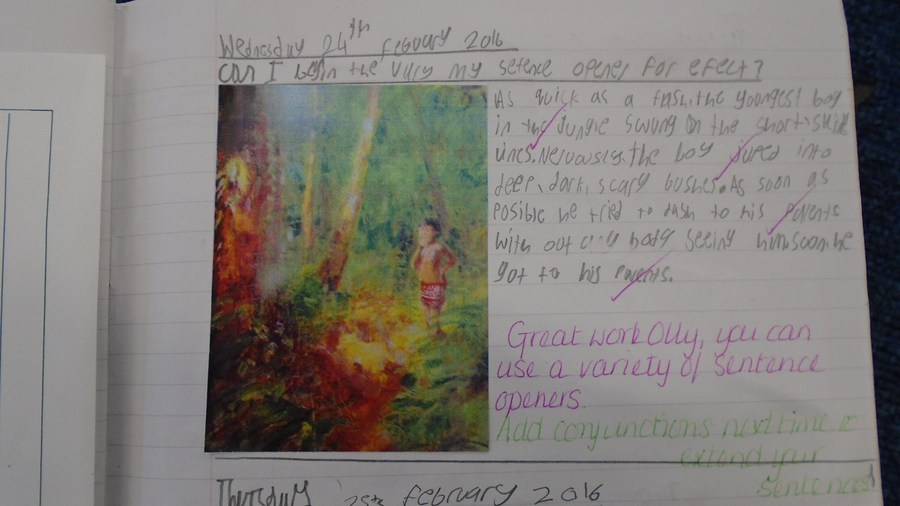 Wednesday 24th febuary 2016
can I begin the vary my setence opener for efect?
As quick as a flash,the youngest boy
in the Jungle swung on the short,
vines. Nervously,the boy into
deep, dark, scary bushes. As soon as
Posible he tried to dash to his parents
with out body seeing him.soon he
got to his parents.
Great work Olly, you can
use a variety of sentence
openers.
Add conjunctions next time to
extend your
sentences!
Thursday 25th february 2016